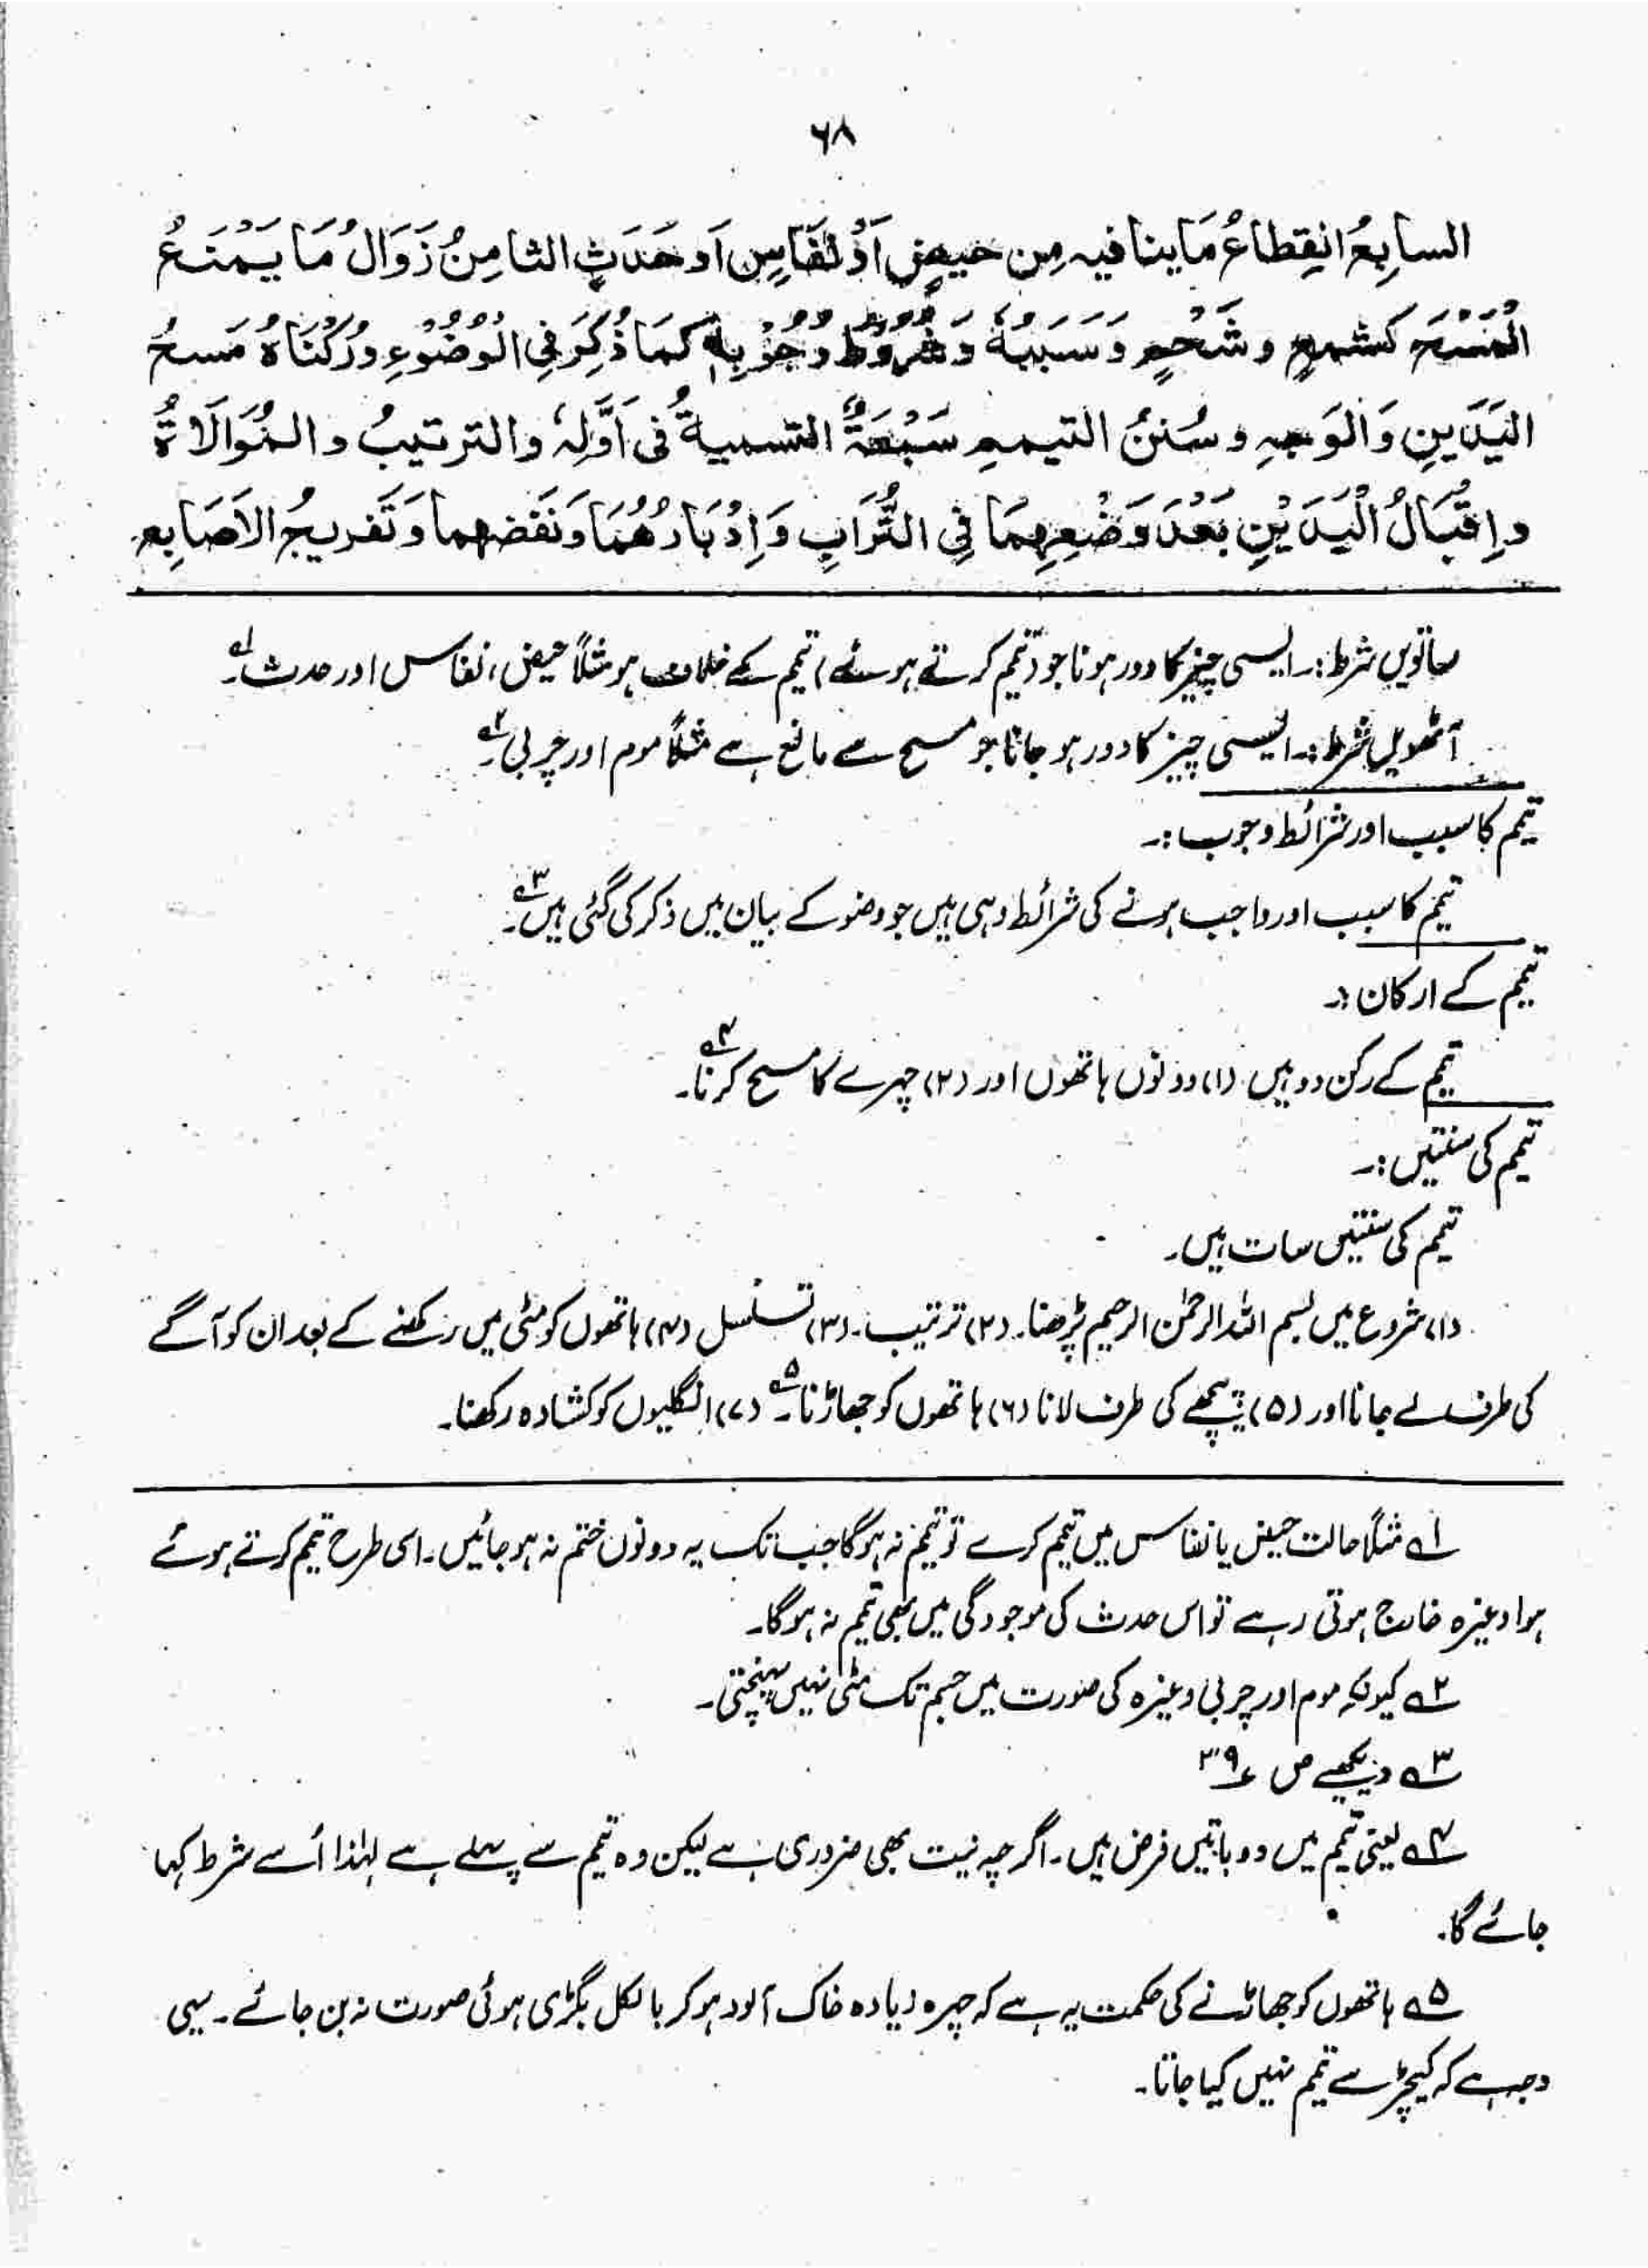 ۶۸
السابِعُ انقِطاعُ مَاینافیہ مِن حیضٍ اَوْ نفَاسٍ اَو حَدَثٍ الثامِنُ زَوَالُ مَا یَمْنَعُ
الْمَسْحَ کشمعٍ و شَحْمٍ وَسَبَبُہٗ وَشُرُوْطُ وُجُوْبِہٖ کَمَا ذُکِرَ فِی الْوُضُوْءِ وَرُکْنَاہُ مَسحُ
الیَدَینِ وَالوَجہِ و سُنَنُ التیممِ سَبْعَۃٌ التسمیۃُ فی اَوَّلِہٖ والترتیبُ والمُوَالَاۃُ
واِقْبَالُ الْیَدَیْنِ بَعْدَ وَضْعِہِمَا فِی التُّرَابِ وَاِدْبَارُھُمَا وَنَفضھما وَتَفریجُ الاَصَابِع
ساتویں شرط:۔ ایسی چیز کا دور ہونا جو (تیمم کرتے ہوئے) تیمم کے خلاف ہو مثلاً حیض، نفاس اور حدث۔ ۱ے
آٹھویں شرط:۔ ایسی چیز کا دور ہو جانا جو مسح سے مانع ہے مثلاً موم اور چربی۔ ۲ے
تیمم کا سبب اور شرائط وجوب:۔
تیمم کا سبب اور واجب ہونے کی شرائط وہی ہیں جو وضو کے بیان میں ذکر کی گئی ہیں۔ ۳ے
تیمم کے ارکان:۔
تیمم کے رکن دو ہیں (۱) دونوں ہاتھوں اور (۲) چہرے کا مسح کرنا۔ ۴ے
تیمم کی سنتیں:۔
تیمم کی سنتیں سات ہیں۔
(۱) شروع میں بسم اللہ الرحمٰن الرحیم پڑھنا۔ (۲) ترتیب۔ (۳) تسلسل (۴) ہاتھوں کو مٹی میں رکھنے کے بعد ان کو آگے
کی طرف لے جانا اور (۵) پیچھے کی طرف لانا (۶) ہاتھوں کو جھاڑنا۔ ۵ے (۷) انگلیوں کو کشادہ رکھنا۔
۱ے مثلاً حالت حیض یا نفاس میں تیمم کرے تو تیمم نہ ہوگا جب تک یہ دونوں ختم نہ ہو جائیں۔ اسی طرح تیمم کرتے ہوئے
ہوا وغیرہ خارج ہوتی رہے تو اس حدث کی موجودگی میں بھی تیمم نہ ہوگا۔
۲ے کیونکہ موم اور چربی وغیرہ کی صورت میں جسم تک مٹی نہیں پہنچتی۔
۳ے دیکھیے ص ۳۹
۴ے یعنی تیمم میں دو باتیں فرض ہیں۔ اگرچہ نیت بھی ضروری ہے لیکن وہ تیمم سے پہلے ہے لہٰذا اُسے شرط کہا
جائے گا۔
۵ے ہاتھوں کو جھاڑنے کی حکمت یہ ہے کہ چہرہ زیادہ خاک آلود ہو کر بالکل بگڑی ہوئی صورت نہ بن جائے۔ یہی
وجہ ہے کہ کیچڑ سے تیمم نہیں کیا جاتا۔